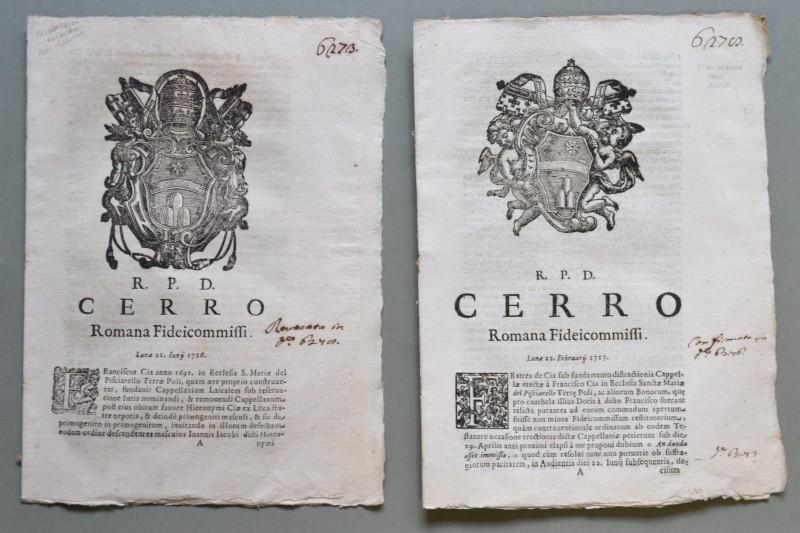 6273.
R. P. D.
CERRO
Romana Fideicommissi.
Revocata in
Lunæ 22. Iunij 1716.
FRanciscus Cia anno 1691. in Ecclesia S. Mariæ del
Pisciarello Terræ Poli, quam ære proprio construxe-
rat, fundauit Cappellaniam Laicalem sub reserua-
tione Iuris nominandi, & remouendi Cappellanum
post eius obitum fauore Hieronymi Ciæ ex Luca fra-
tre nepotis, & deindè primogeniti masculi, & sic de
primogenito in primogenitum, inuitando in illorum defectum
eodem ordine descendentes masculos Ioannis Iacobi dicti Hiero-
A nymi
R. P. D.
CERRO
Romana Fideicommissi.
Confirmata in
Lunæ 22. Februarij 1717.
FRatres de Cia sub fundamento distractionis Cappel-
læ erectæ à Francisco Cia in Ecclesia Sanctæ Mariæ
del Pisciarello Terrę Poli, ac aliorum Bonorum, quę
pro cauthela illius Dotis à dicto Francisco fuerant
relicta putantes ad eorum commodum apertum
fuisse non minus Fideicommissum restitutorium,
quàm contrauentionale ordinatum ab eodem Te-
statore occasione erectionis dictæ Cappellaniæ petierunt sub die
29. Aprilis anni proximi elapsi à me proponi dubium = An danda
esset immissio, in quod cum resolui tunc non potuerit ob suffra-
giorum paritatem, in Audientia diei 22. Iunij subsequentis, de-
A cisum